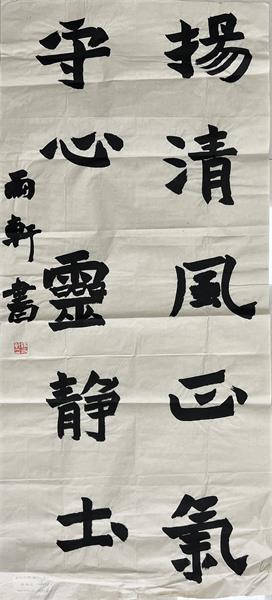 揚清風正氣
守心靈静土
雨軒書